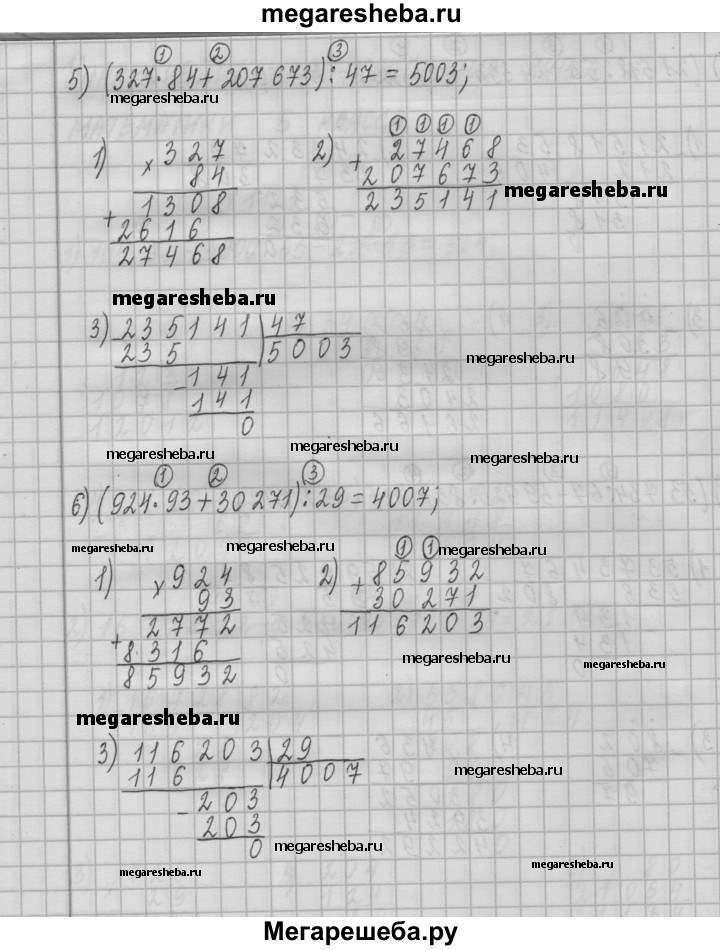 megaresheba.ru
① ② ③
5) (327·84+207 673):47=5003;
megaresheba.ru
1) × 327
84
1308
+ 2616
27468
2) ① ① ① ①
+ 27468
207673
235141
megaresheba.ru
megaresheba.ru
3) 235141 | 47
235 | 5003
- 141
141
0
megaresheba.ru
megaresheba.ru
megaresheba.ru
megaresheba.ru
① ② ③
6) (924·93+30 271):29=4007;
megaresheba.ru
megaresheba.ru
megaresheba.ru
1) × 924
93
2772
+ 8316
85932
2) ① ①
+ 85932
30271
116203
megaresheba.ru
megaresheba.ru
megaresheba.ru
3) 116203 | 29
116 | 4007
- 203
203
0
megaresheba.ru
megaresheba.ru
megaresheba.ru
megaresheba.ru
Мегарешеба.ру